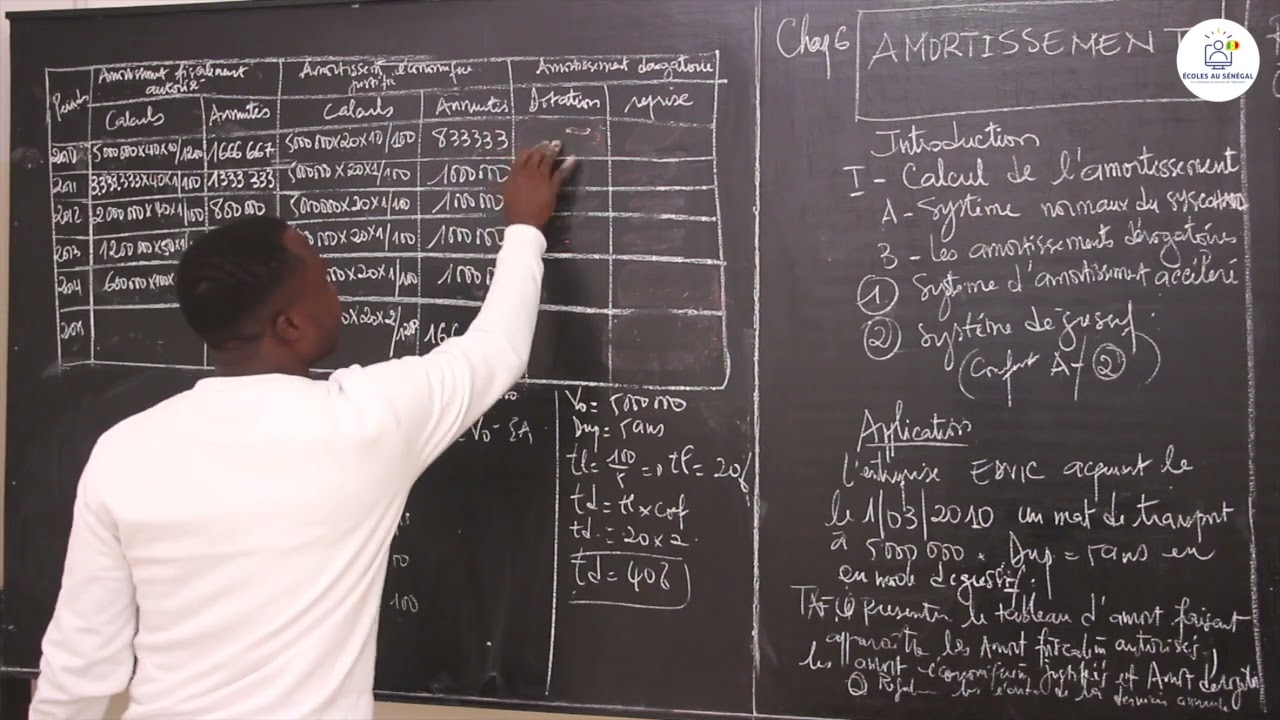 Amortissement fiscalement autorisé
Amortissemt économique justifié
Amortissement dérogatoire
Calculs Annuités Calculs Annuités Dotation reprise
2010 5000000x40x10/1200 1666 667 5000000x20x10/100 833333
2011 3333.333x40x1/100 1333 333 5000000x20x1/100 1000000
2012 2000000x40x1/100 800000 5000000x20x1/100 1000000
2013 1200000x50x1/ 00x20x1/100 1000000
2014 600000x100x x20x1/100 10000
0x20x2/120 166
= V0 - ΣA
V0 = 5000000
Dup = 5ans
tl = 100/5 => tl = 20%
td = tl x coef
td = 20 x 2
td = 40%
Chap 6 AMORTISSEMENT
ÉCOLES AU SÉNÉGAL
Introduction
I - Calcul de l'amortissement
A - Système normaux du SYSCOHADA
B - Les amortissements dérogatoires
① Système d'amortissement accéléré
② Système dégressif.
(Confert A- ②)
Application
l'entreprise EDVIC acquiert le
le 1/03/2010 un mat de transport
à 5000 000. Dup = 5ans en
en mode degressif.
TAF: ① presenter le tableau d'amort faisant
apparaître les Amort fiscalem autorisés,
les amort économiqum justifiés et Amort dérogato
② les de la dernière année